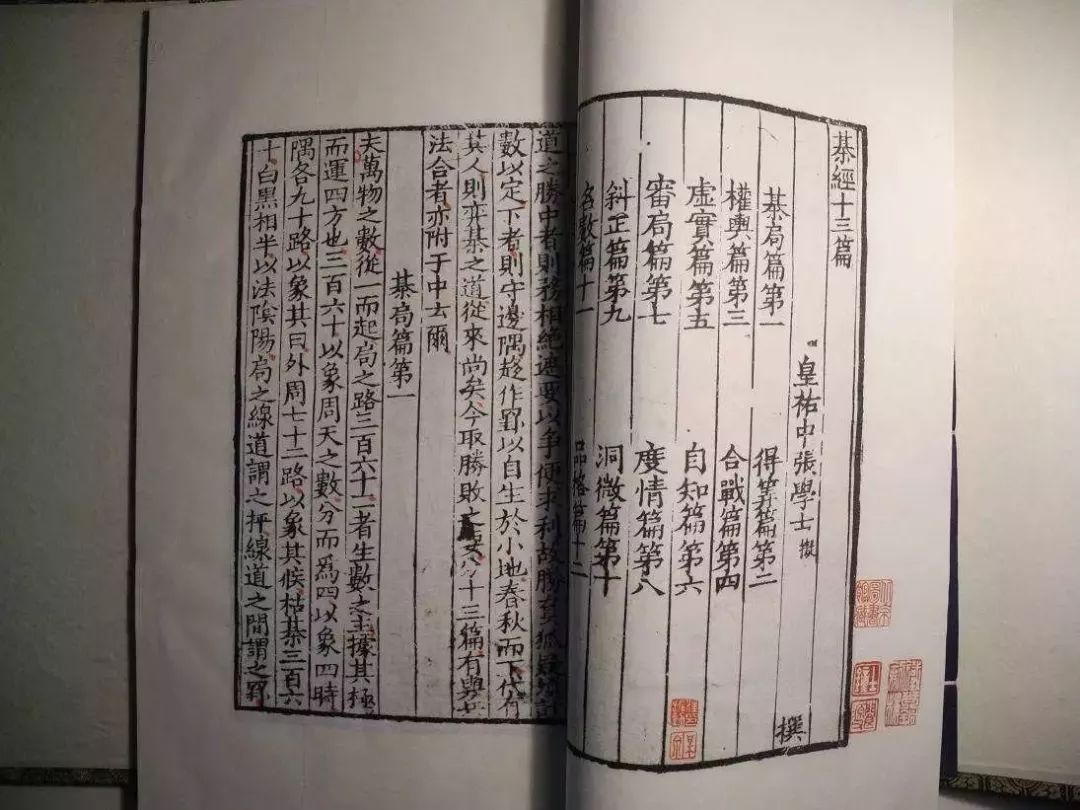 棊經十三篇
皇祐中張學士 撰
棊局篇第一 得筭篇第二
權輿篇第三 合戰篇第四
虛實篇第五 自知篇第六
審局篇第七 度情篇第八
斜正篇第九 洞微篇第十
名數篇十一 品格篇十二
道之勝中者則務相絶遮要以争便求利故勝負狐疑計
數以定下者則守邊隅趍作罫以自生於小地春秋而下代有
其人則弈棊之道從來尚矣今取勝敗之要分十三篇有與兵
法合者亦附于中云爾
棊局篇第一
夫萬物之數從一而起局之路三百六十一一者生數之主據其極
而運四方也三百六十以象周天之數分而爲四以象四時
隅各九十路以象其日外周七十二路以象其候枯棊三百六
十白黑相半以法隂陽局之線道謂之枰線道之間謂之罫